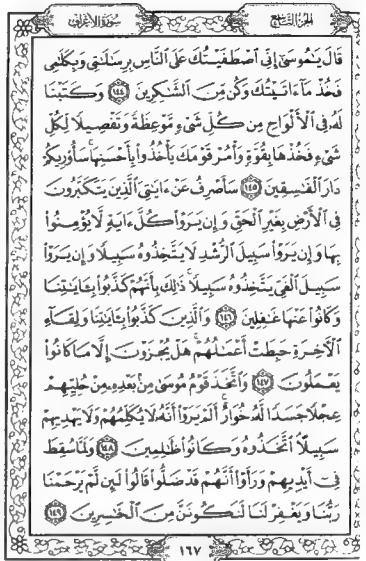 الجزء التاسع سورة الأعراف
قَالَ يَٰمُوسَىٰٓ إِنِّي ٱصۡطَفَيۡتُكَ عَلَى ٱلنَّاسِ بِرِسَٰلَٰتِي وَبِكَلَٰمِي
فَخُذۡ مَآ ءَاتَيۡتُكَ وَكُن مِّنَ ٱلشَّٰكِرِينَ ١٤٤ وَكَتَبۡنَا
لَهُۥ فِي ٱلۡأَلۡوَاحِ مِن كُلِّ شَيۡءٖ مَّوۡعِظَةٗ وَتَفۡصِيلٗا لِّكُلِّ
شَيۡءٖ فَخُذۡهَا بِقُوَّةٖ وَأۡمُرۡ قَوۡمَكَ يَأۡخُذُواْ بِأَحۡسَنِهَاۚ سَأُوْرِيكُمۡ
دَارَ ٱلۡفَٰسِقِينَ ١٤٥ سَأَصۡرِفُ عَنۡ ءَايَٰتِيَ ٱلَّذِينَ يَتَكَبَّرُونَ
فِي ٱلۡأَرۡضِ بِغَيۡرِ ٱلۡحَقِّ وَإِن يَرَوۡاْ كُلَّ ءَايَةٖ لَّا يُؤۡمِنُواْ
بِهَا وَإِن يَرَوۡاْ سَبِيلَ ٱلرُّشۡدِ لَا يَتَّخِذُوهُ سَبِيلٗا وَإِن يَرَوۡاْ
سَبِيلَ ٱلۡغَيِّ يَتَّخِذُوهُ سَبِيلٗاۚ ذَٰلِكَ بِأَنَّهُمۡ كَذَّبُواْ بِـَٔايَٰتِنَا
وَكَانُواْ عَنۡهَا غَٰفِلِينَ ١٤٦ وَٱلَّذِينَ كَذَّبُواْ بِـَٔايَٰتِنَا وَلِقَآءِ
ٱلۡأٓخِرَةِ حَبِطَتۡ أَعۡمَٰلُهُمۡۚ هَلۡ يُجۡزَوۡنَ إِلَّا مَا كَانُواْ
يَعۡمَلُونَ ١٤٧ وَٱتَّخَذَ قَوۡمُ مُوسَىٰ مِنۢ بَعۡدِهِۦ مِنۡ حُلِيِّهِمۡ
عِجۡلٗا جَسَدٗا لَّهُۥ خُوَارٌۚ أَلَمۡ يَرَوۡاْ أَنَّهُۥ لَا يُكَلِّمُهُمۡ وَلَا يَهۡدِيهِمۡ
سَبِيلًاۘ ٱتَّخَذُوهُ وَكَانُواْ ظَٰلِمِينَ ١٤٨ وَلَمَّا سُقِطَ
فِيٓ أَيۡدِيهِمۡ وَرَأَوۡاْ أَنَّهُمۡ قَدۡ ضَلُّواْ قَالُواْ لَئِن لَّمۡ يَرۡحَمۡنَا
رَبُّنَا وَيَغۡفِرۡ لَنَا لَنَكُونَنَّ مِنَ ٱلۡخَٰسِرِينَ ١٤٩
١٦٧